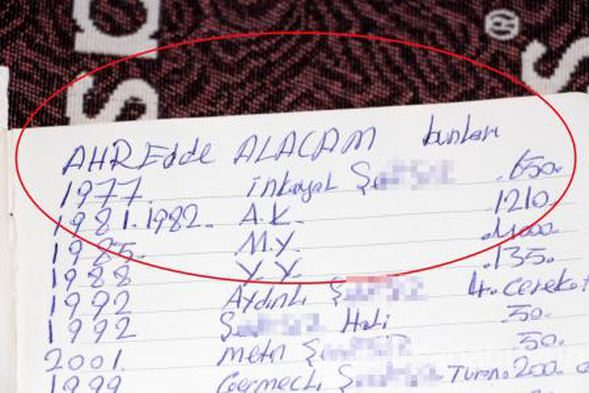 AHREdde ALACAM bunları
1977. inkoyal Şe .650.
1981.1982. A.K. 1210.
1985. M.Y. .4000.
1988 Y.Y. .135.
1992 Aydınlı Ş 4.cereket
1992 Ş Hali .50.
2001. metin Ş .50.
1999 Germeçli Ş Turno.200.